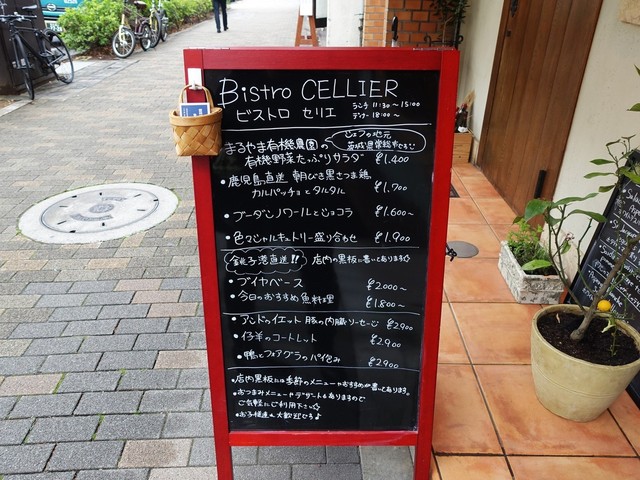 Bistro CELLIER
ビストロ セリエ
ランチ 11:30～15:00
ディナー 18:00～
シェフの地元
茨城県常総市から♡
まるやま有機農園の
有機野菜たっぷりサラダ ¥1,400
・鹿児島直送 朝びき黒さつま鶏、
カルパッチョとタルタル ¥1,700
・ブーダンノワールとショコラ ¥1,600～
・色々シャルキュトリー盛り合わせ ¥1,900
銚子港直送!! 店内の黒板に書いてあります☆
・ブイヤベース ¥2000～
・今日のおすすめ魚料理 ¥1,800～
・アンドゥイエット 豚の内臓ソーセージ ¥2900
・仔羊のコートレット ¥2900
・鴨とフォアグラのパイ包み ¥2900
・店内黒板には季節のメニューやおすすめが書いてあります。
・おつまみメニューやデザートもありますので
ご気軽にご利用下さい☆
・お子様連れ大歓迎です♪